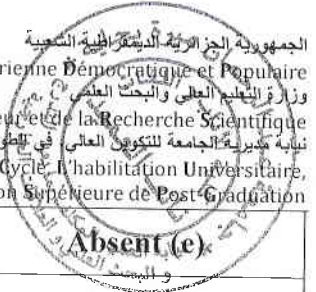 الجمهورية الجزائرية الديمقراطية الشعبية
rienne Démocratique et Populaire
وزارة التعليم العالي والبحث العلمي
eur et de la Recherche Scientifique
نيابة مديرية الجامعة للتكوين العالي في الطو
Cycle, L'habilitation Universitaire,
on Supérieure de Post-Graduation
Absent (e)